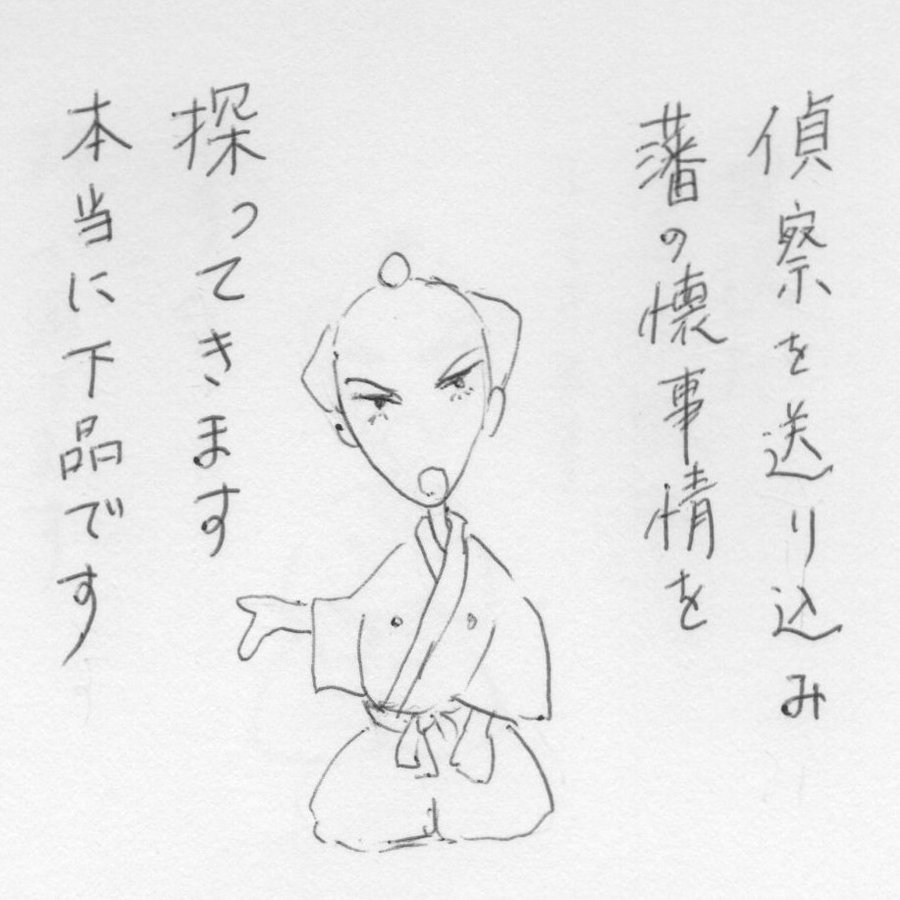 偵察を送り込み
藩の懐事情を
探ってきます
本当に下品です